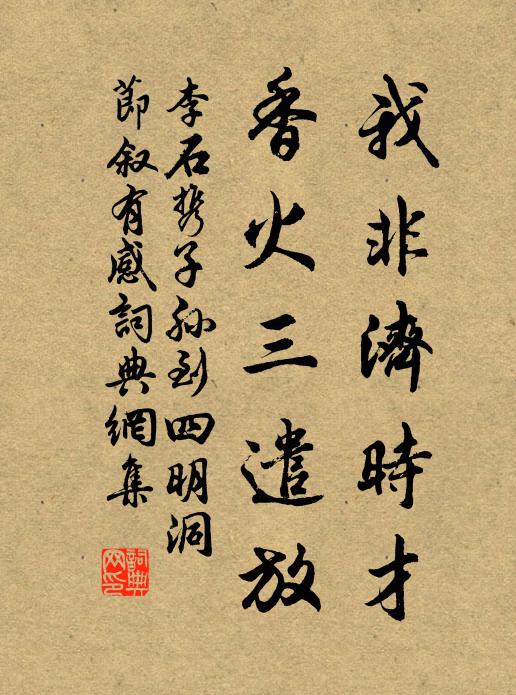 我非濟時才
香火三遣放
李石携子孫到四明洞
節叙有感詞典網集
詞典網印